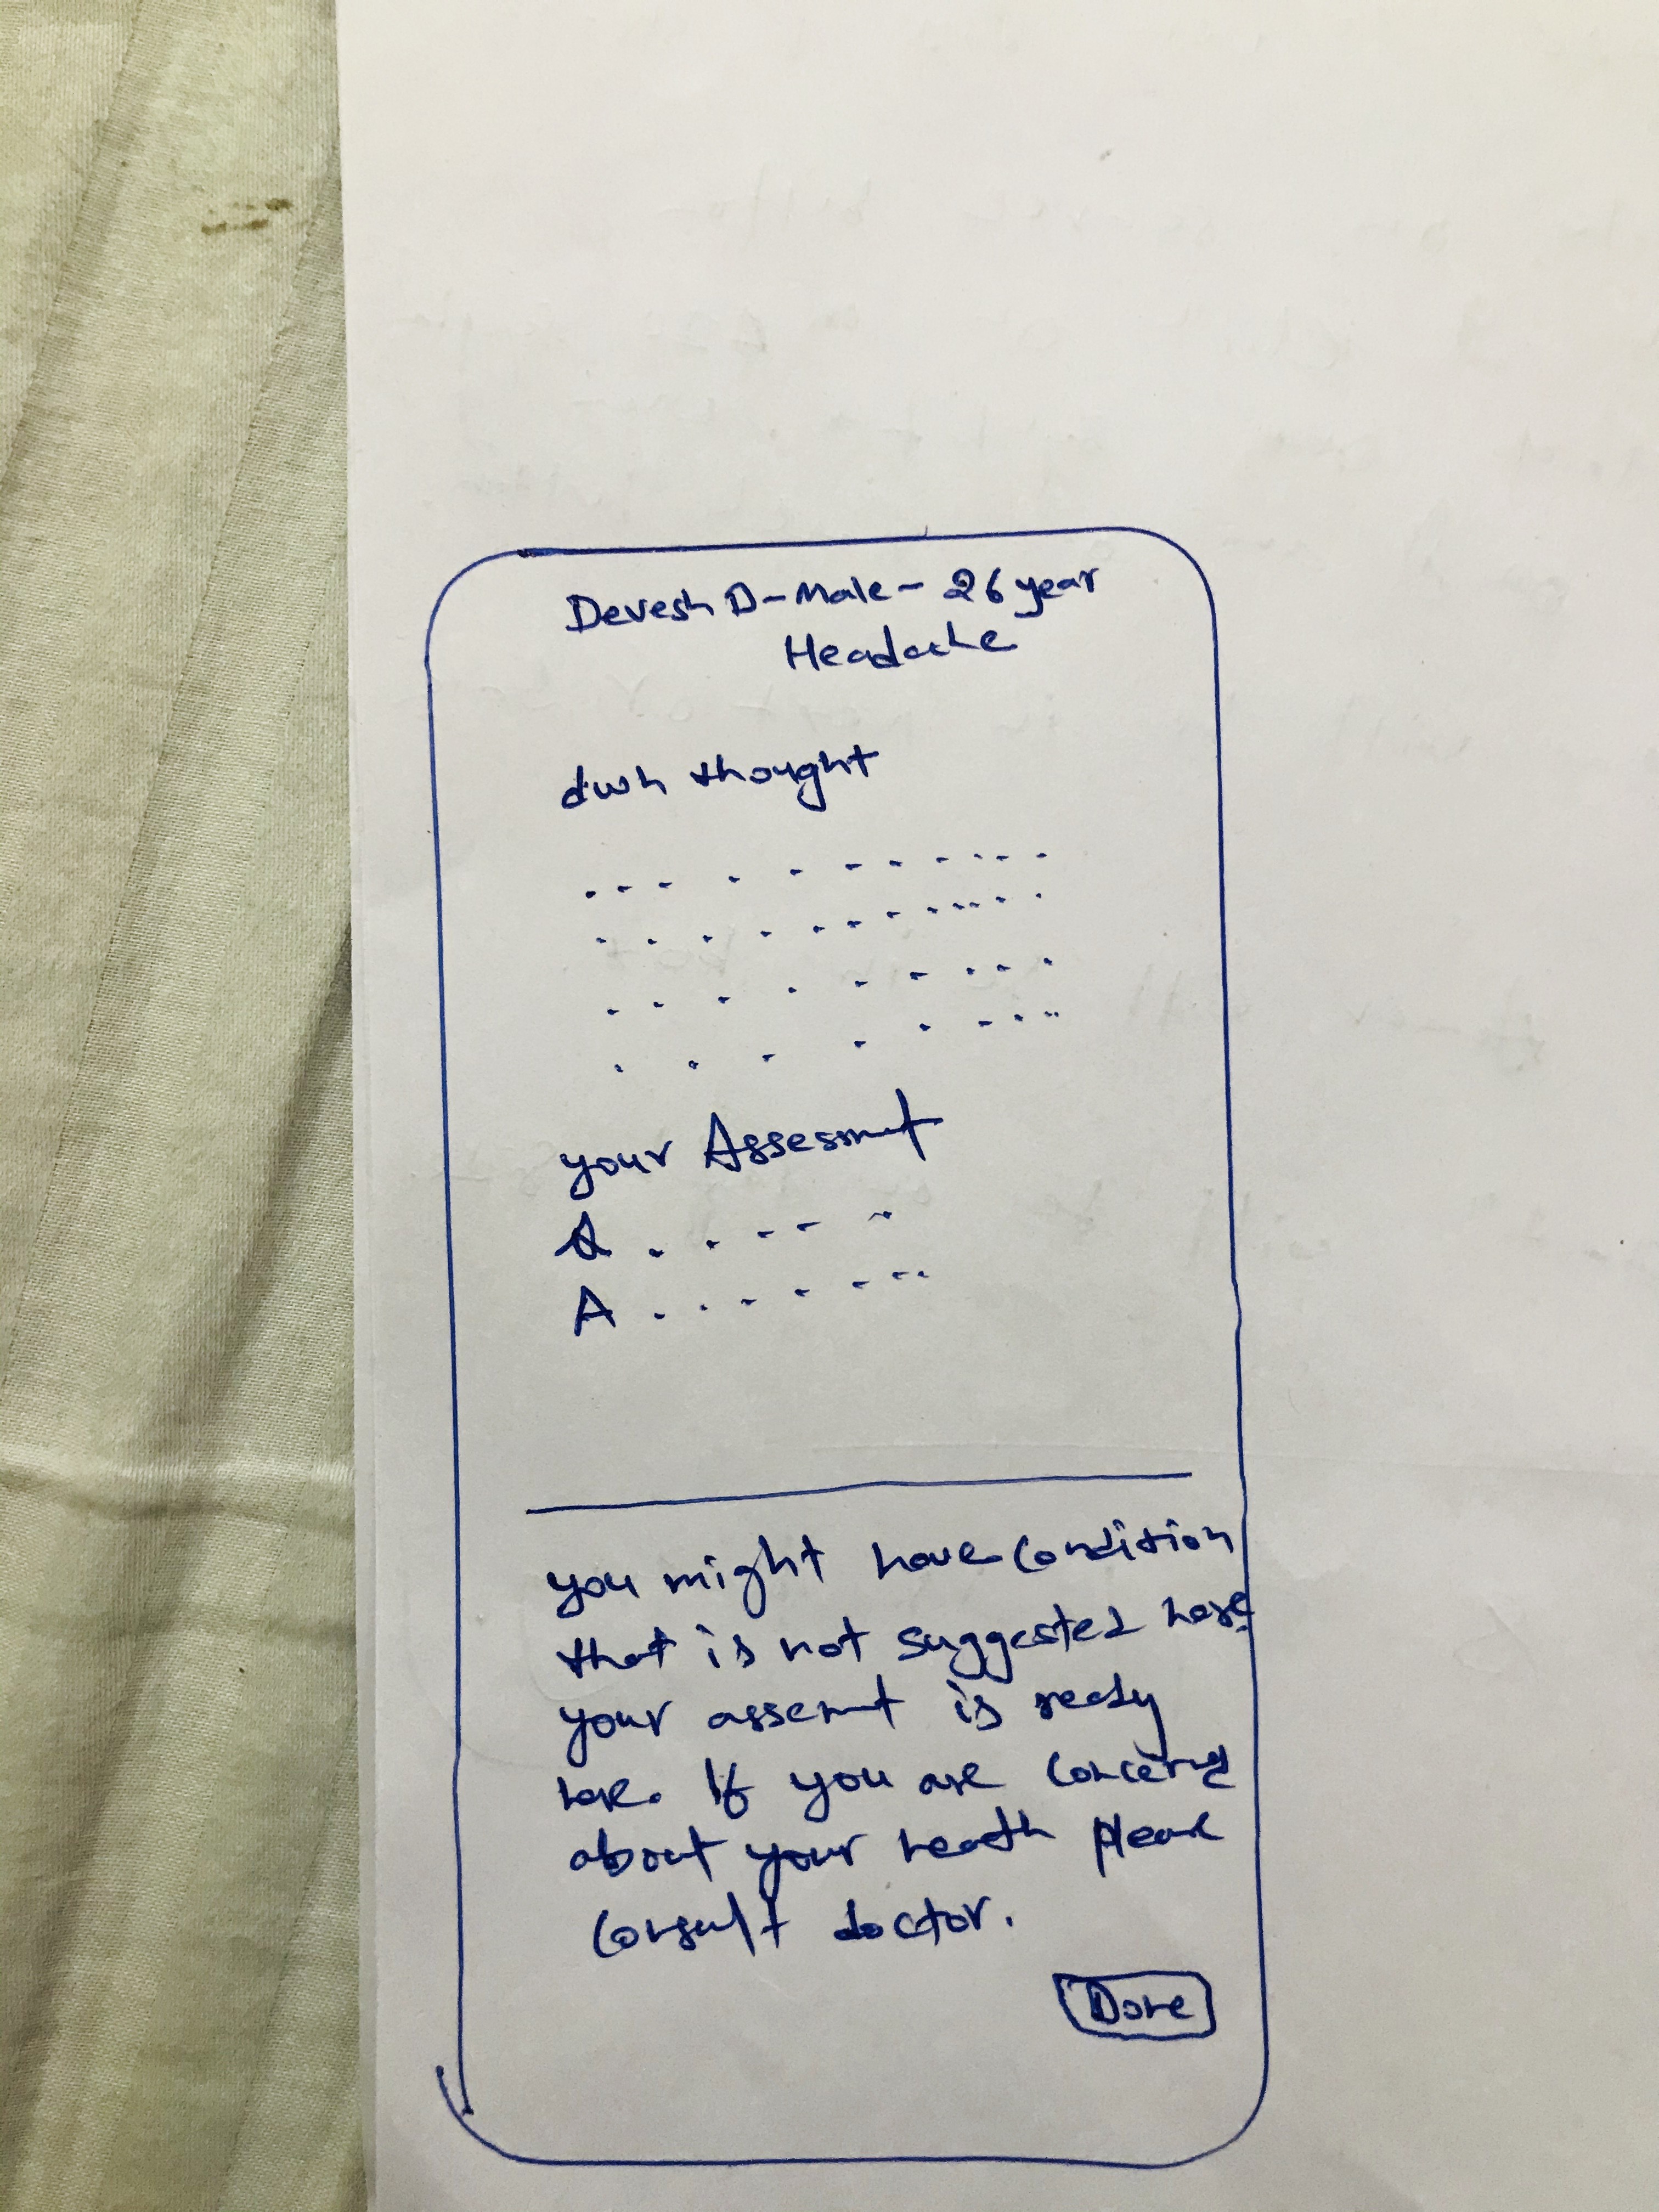 Devesh D - Male - 26 year
Headache
dwh thought
your Assesmnt
Q . . . . .
A . . . . . . .
you might have condition
that is not suggested here
your assemnt is ready
here. If you are concerned
about your heath please
consult doctor.
Done